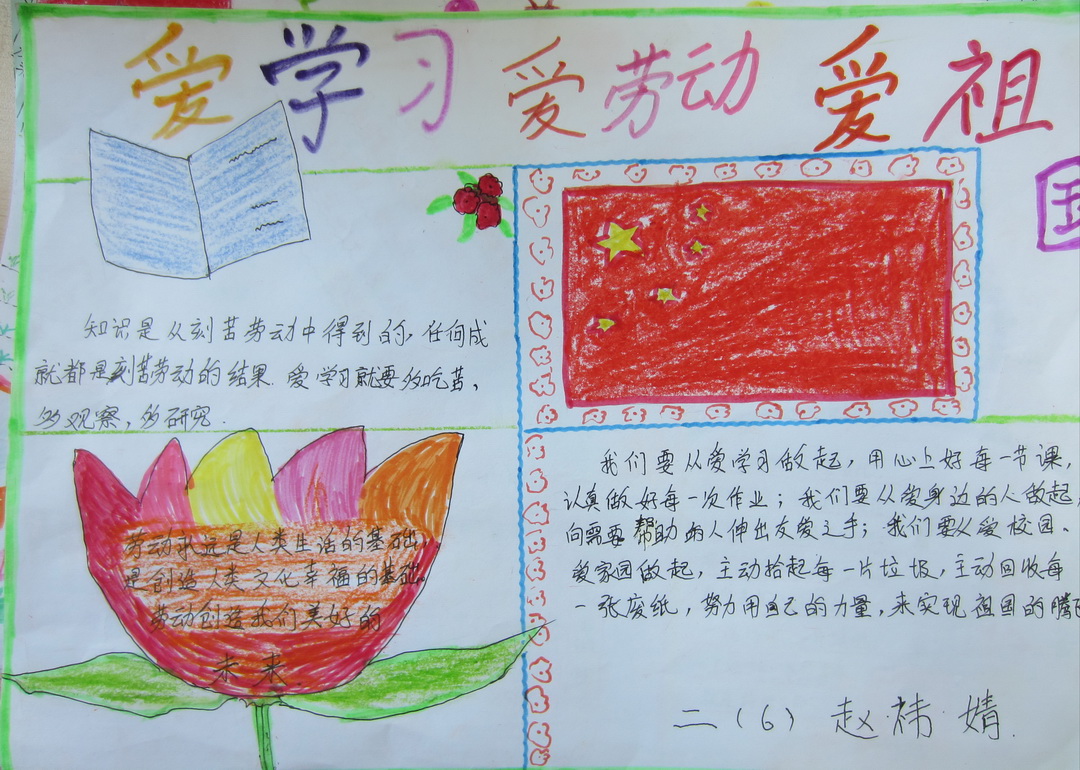 爱学习爱劳动爱祖
国
知识是从刻苦劳动中得到的,任何成
就都是刻苦劳动的结果.爱学习就要多吃苦,
多观察,多研究.
劳动永远是人类生活的基础,
是创造人类文化幸福的基础。
劳动创造我们美好的
未来
我们要从爱学习做起,用心上好每一节课,
认真做好每一次作业;我们要从爱身边的人做起
向需要帮助的人伸出友爱之手;我们要从爱校园、
爱家园做起,主动拾起每一片垃圾,主动回收每
一张废纸,努力用自己的力量,来实现祖国的腾
二(6) 赵祎婧.